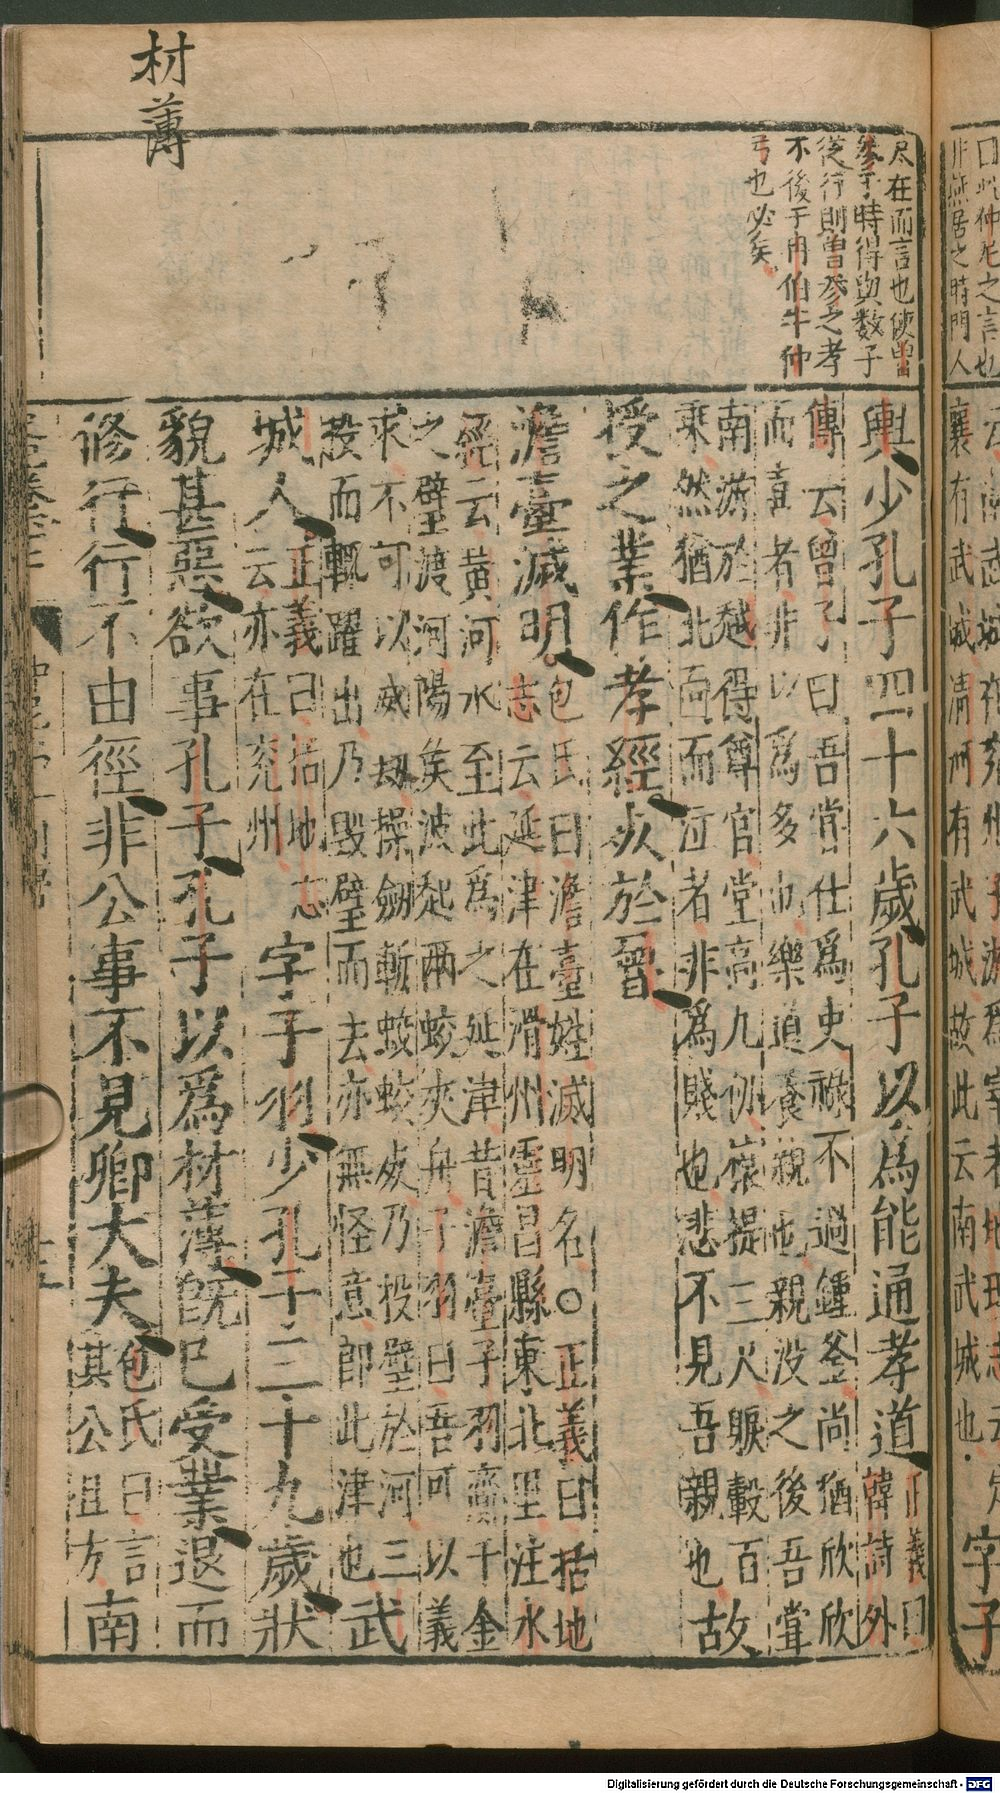 曰此仲尼之言也
非燕居之時門人
襄有武城清河有武城故此云南武城也
字子
尽在而言也使曾
參于時得與数子
從行則曾參之孝
不後于冉伯牛仲
弓也必矣
輿少孔子四十六歲孔子以為能通孝道
正義曰
韓詩外
傳云曾子曰吾嘗仕為吏祿不過鍾釜尚猶欣欣
而喜者非以為多也樂道養親也親没之後吾嘗
南游於越得尊官堂高九仞榱提三尺躆轂百
乗然猶北向而泣者非為賤也悲不見吾親也故
授之業作孝經死於魯
澹臺滅明
包氏曰澹臺姓滅明名○正義曰括地
志云延津在滑州靈昌縣東北里注水
經云黄河水至此為之延津昔澹臺子羽齎千金
之璧渡河陽矦波起兩蛟夾舟子羽曰吾可以義
求不可以威劫操劒斬蛟蛟死乃投璧於河三
投而輒躍出乃毀璧而去亦無怪意即此津也
武
城人
正義曰括地志
云亦在兗州
字子羽少孔子三十九歲狀
貌甚惡欲事孔子孔子以為材薄既已受業退而
修行行不由徑非公事不見卿大夫
包氏曰言
其公且方
南
材薄
Digitalisierung gefördert durch die Deutsche Forschungsgemeinschaft - DFG